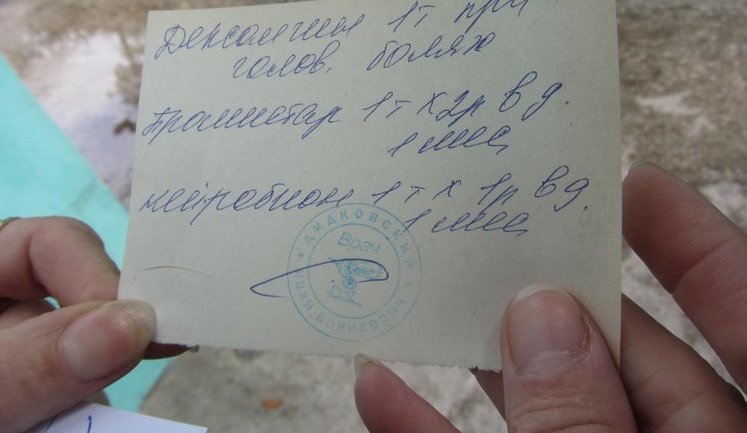 Дексалгин 1т при
голов. болях
1т х 2р в д.
1 мес
нейробион 1т х 1р в д.
1 мес
ДИДКОВСКИЙ
Врач
ИВАН БОРИСОВИЧ